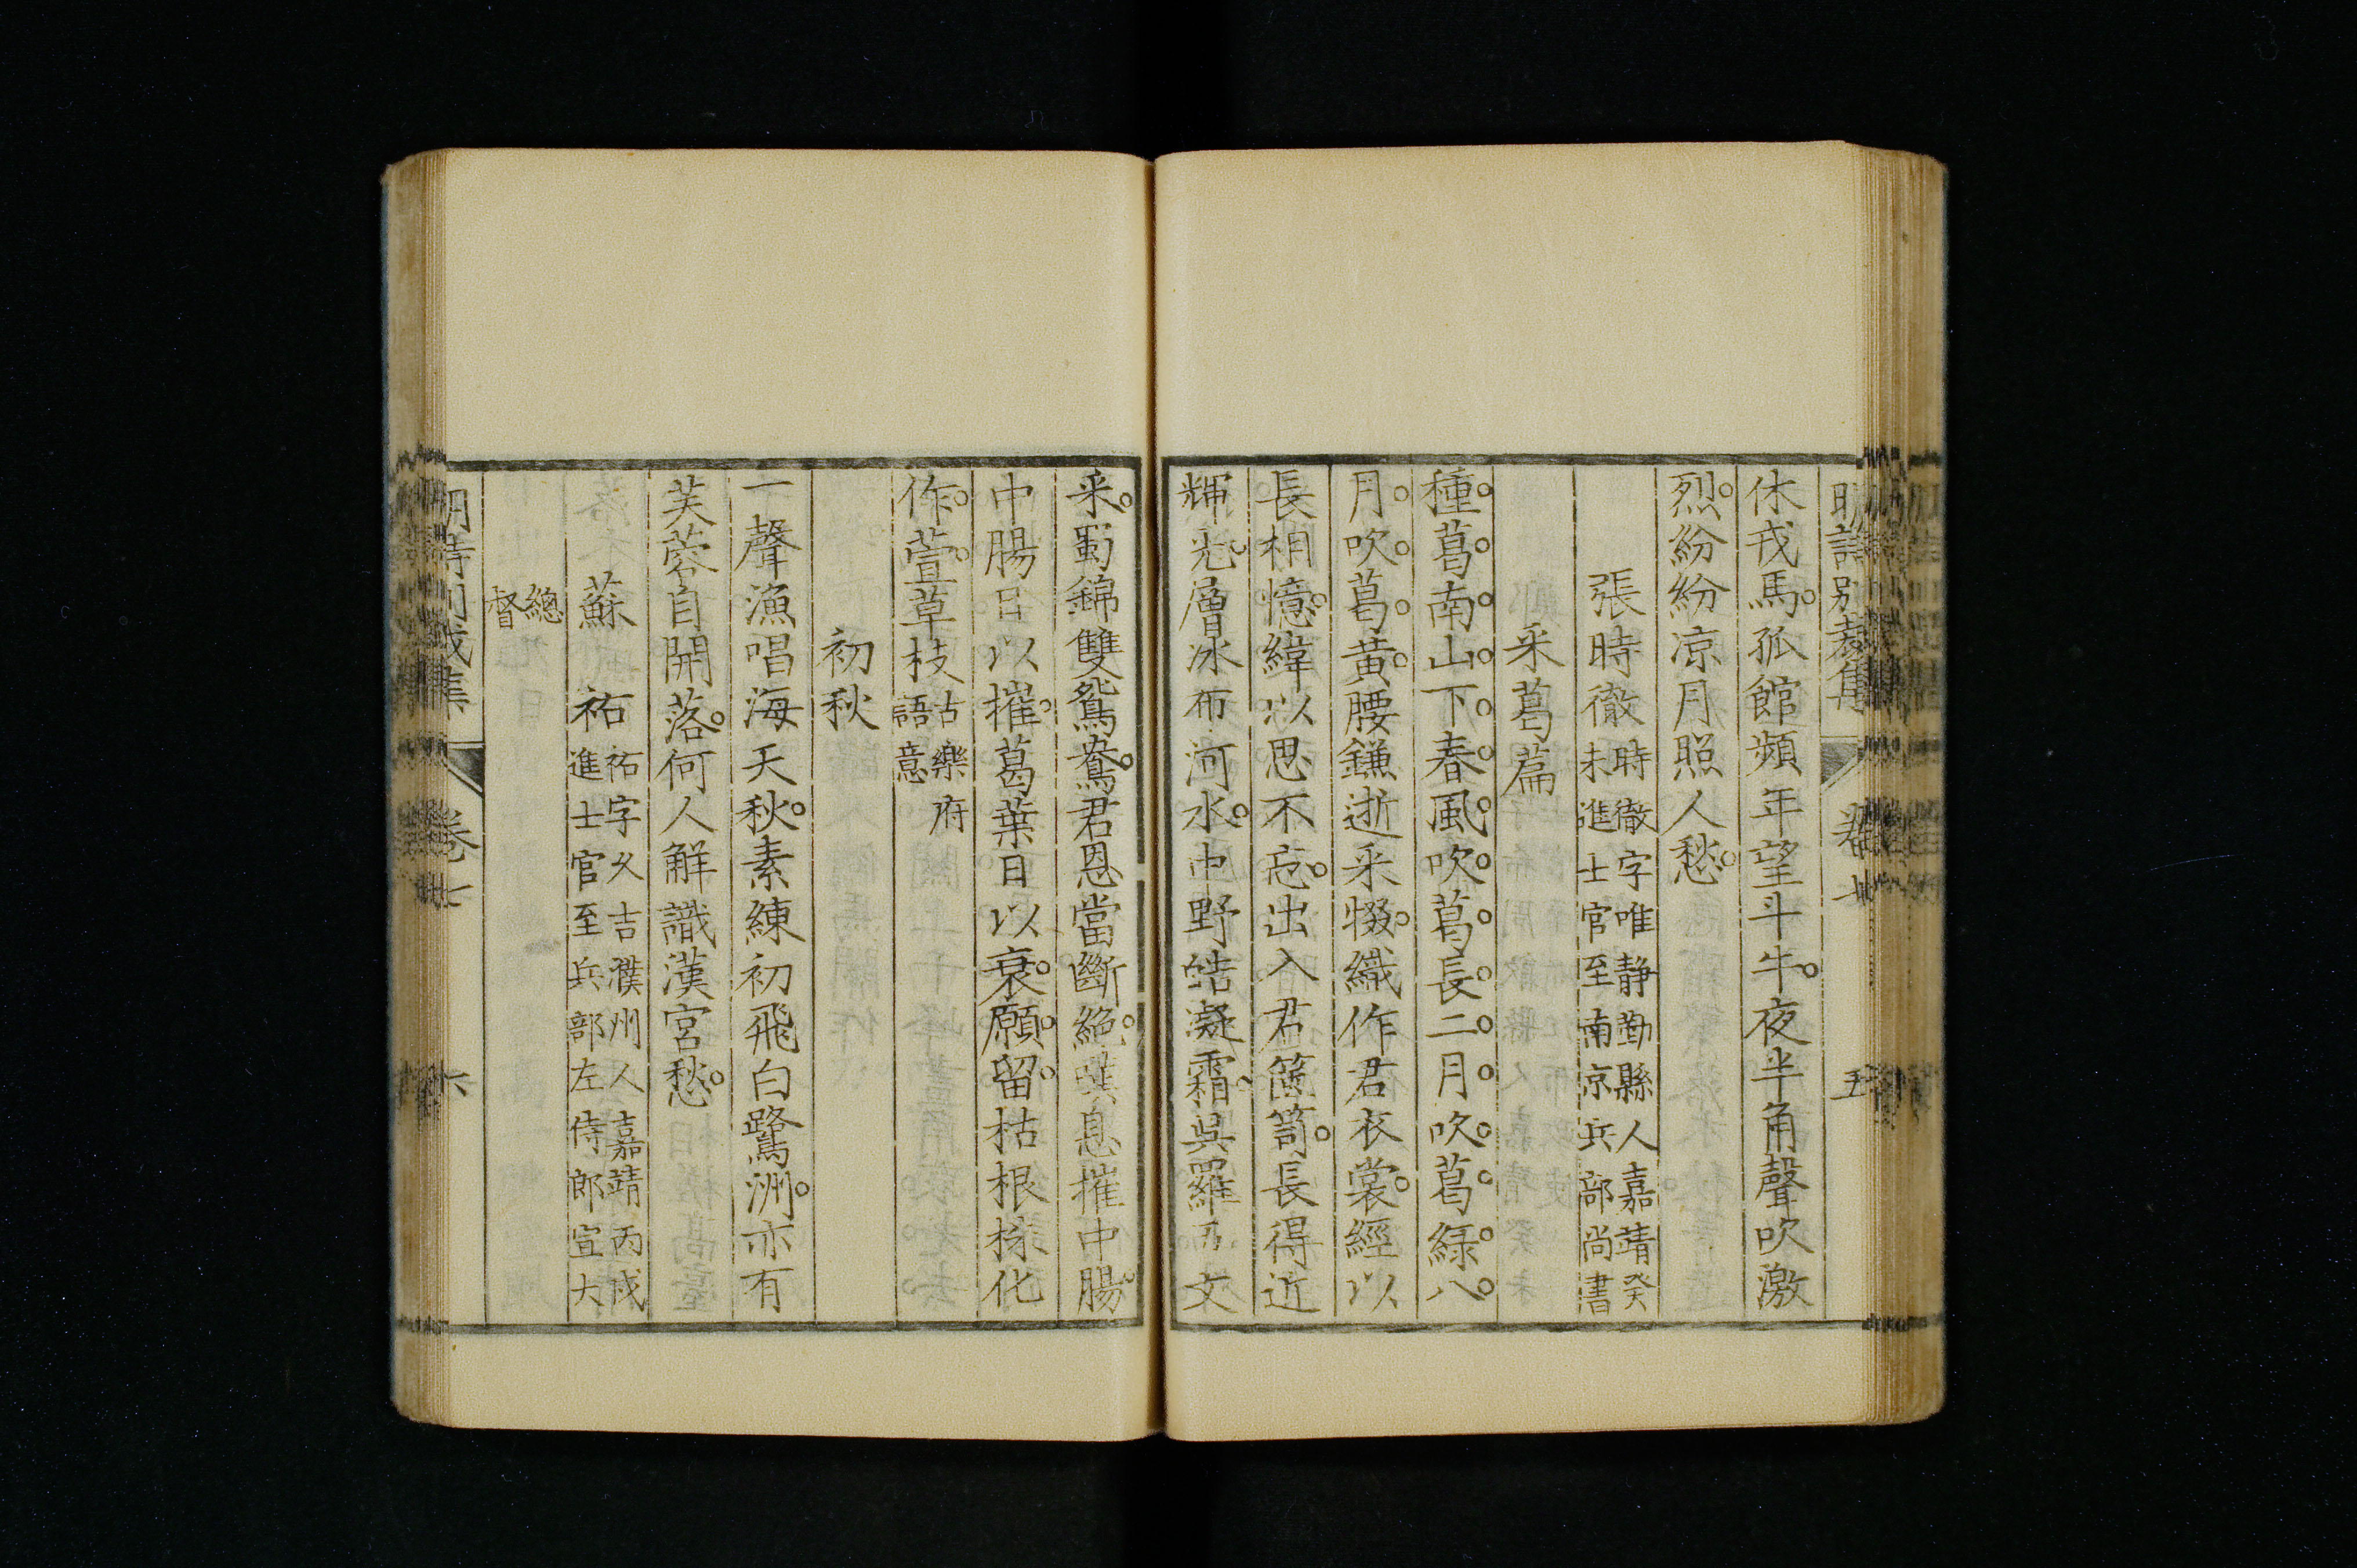 明詩別裁集 卷七 五
休戎馬孤館頻年望斗牛夜半角聲吹激
烈紛紛凉月照人愁
張時徹 時徹字唯靜勤縣人嘉靖癸
未進士官至南京兵部尚書
采葛篇
種葛南山下春風吹葛長二月吹葛綠八
月吹葛黃腰鎌逝采掇織作君衣裳經以
長相憶緯以思不忘出入君篋笥長得近
輝光層冰布河水中野皓凝霜吳羅爲文
采蜀錦雙鴛鴦君恩當斷絕嘆息摧中腸
中腸日以摧葛葉日以衰願留枯根株化
作萱草枝 古樂府
語意
初秋
一聲漁唱海天秋素練初飛白鷺洲亦有
芙蓉自開落何人解識漢宮愁
蘇祐 祐字久吉濮州人嘉靖丙戌
進士官至兵部左侍郎宣大
總
督
明詩別裁集 卷七 六